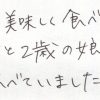 美味しく食べ
と2歳の娘
べていました